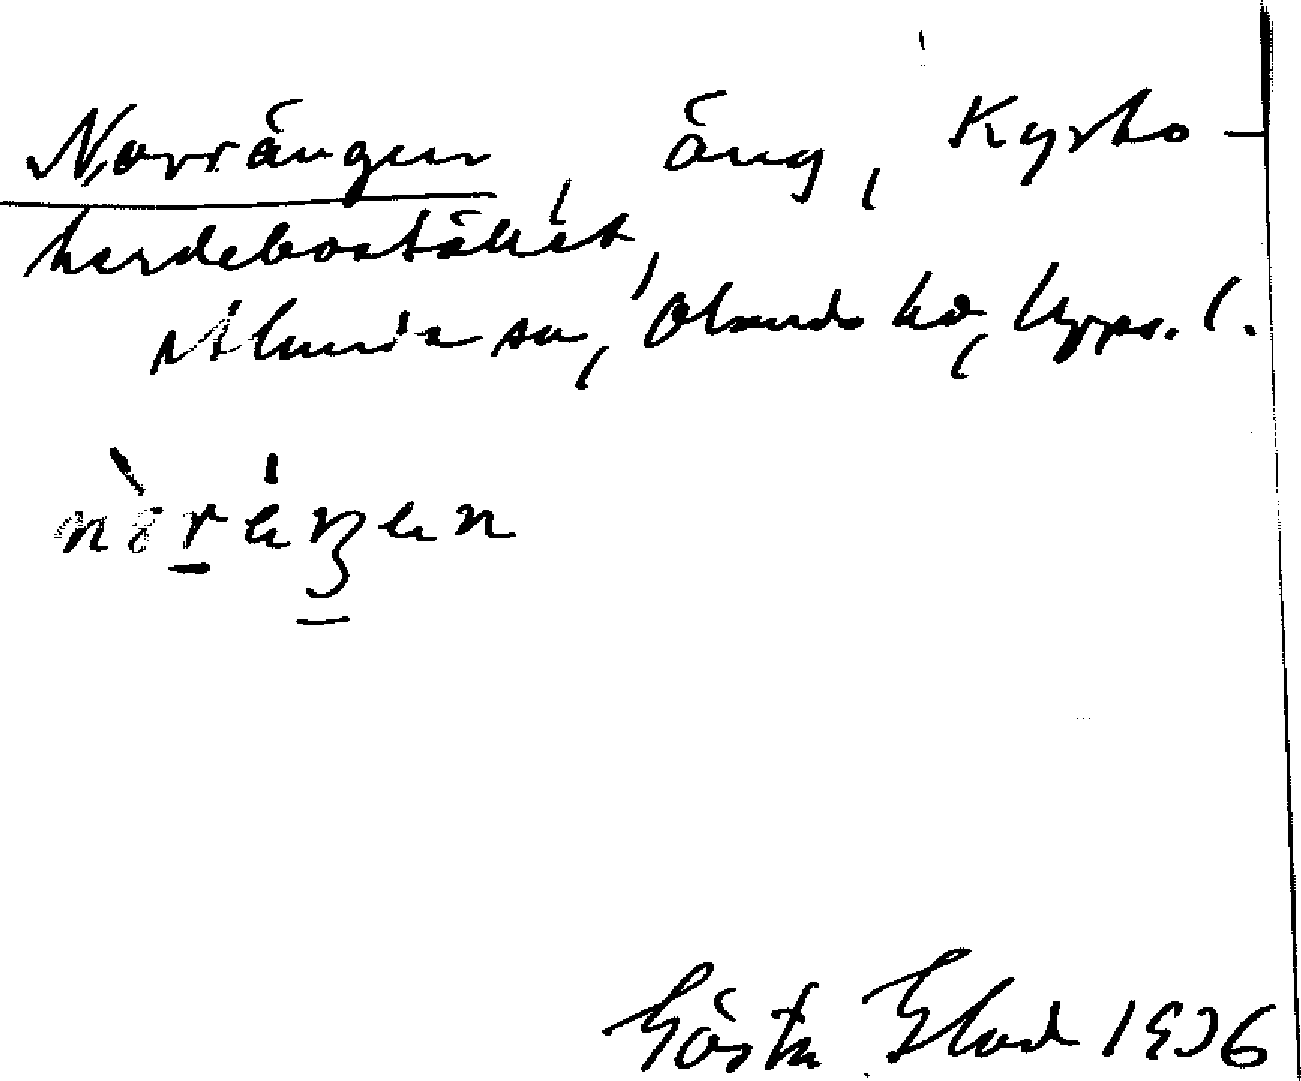 Norrängen, äng, Kyrko-
herdebostället,
Alunda sn, Olands hd, Upps. l.
Gösta Elod 1936